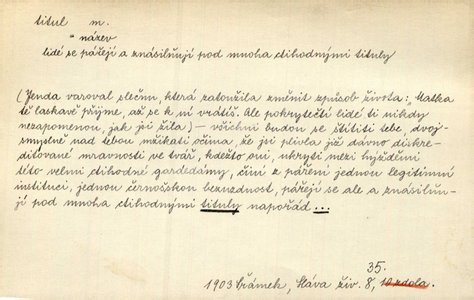 titul m.
" název
lidé se pářejí a znásilňují pod mnoha ctihodnými tituly
(Jenda varoval slečnu, která zatoužila změnit způsob života: „Matka
tě laskavě přijme, až se k ní vrátíš. Ale pokrytečtí lidé ti nikdy
nezapomenou, jak jsi žila) — všichni budou se štítiti tebe, dvoj-
smyslně nad tebou mžikati očima, že jsi plivla již dávno diskre-
ditované mravnosti ve tvář, kdežto oni, ukryti mezi hýžděmi
této velmi ctihodné gardedámy, činí z páření jednou legitimní
instituci, jednou černošskou bezuzdnost, pářejí se ale a znásilňu-
jí pod mnoha ctihodnými tituly napořád ...
35.
1903 Šrámek, Sláva živ. 8, 10 zdola.